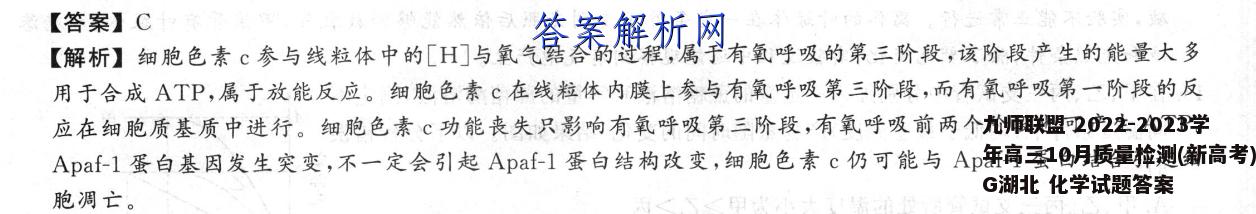 【答案】C
答案解析网
【解析】细胞色素c参与线粒体中的[H]与氧气结合的过程,属于有氧呼吸的第三阶段,该阶段产生的能量大多
用于合成 ATP,属于放能反应。细胞色素c在线粒体内膜上参与有氧呼吸第三阶段,而有氧呼吸第一阶段的反
应在细胞质基质中进行。细胞色素c功能丧失只影响有氧呼吸第三阶段,有氧呼吸前两个
Apaf-1 蛋白基因发生突变,不一定会引起 Apaf-1 蛋白结构改变,细胞色素c仍可能与
胞凋亡。
九师联盟 2022-2023学
年高三10月质量检测(新高考)
G湖北 化学试题答案